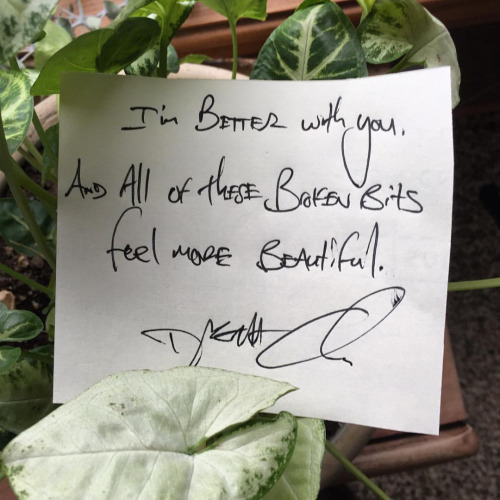 I'm BETTER with you.
AND All of these Broken Bits
feel more Beautiful.